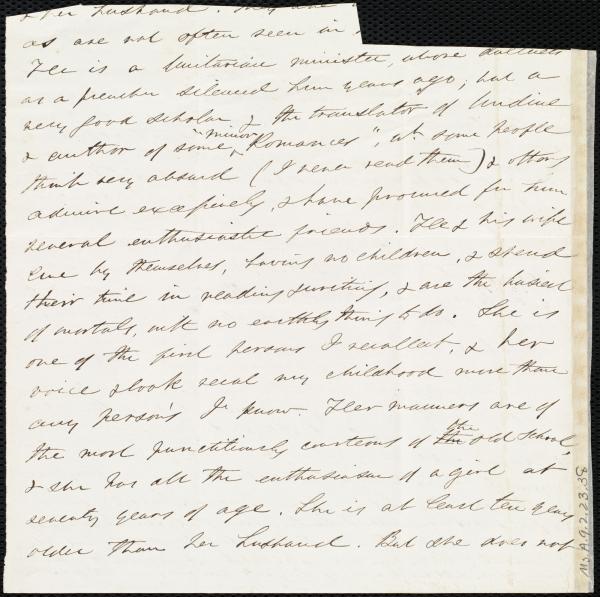 & her husband. They are
as are not often seen in
He is a Unitarian minister, whose dullness
as a preacher silenced him years ago; but a
very good scholar, & the translator of Undine
& author of some "minor Romances", wh. some people
think very absurd (I never read them) & others
admire excessively, & have procured for him
several enthusiastic friends. He & his wife
live by themselves, having no children, & spend
their time in reading & writing, & are the busiest
of mortals, with no earthly thing to do. She is
one of the first persons I recollect, & her
voice & look recal my childhood more than
any person's I know. Her manners are of
the most punctiliously courteous of the the old school,
& she has all the enthusiasm of a girl at
seventy years of age. She is at least ten years
older than her husband. But she does not
Ms.A.9.2.23.38